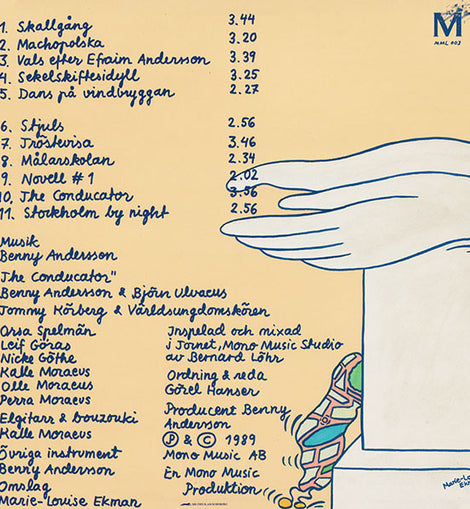 1. Skallgång 3.44
2. Machopolska 3.20
3. Vals efter Efraim Andersson 3.39
4. Sekelskiftesidyll 3.25
5. Dans på vindbryggan 2.27
6. Stjuls 2.56
7. Tröstevisa 3.46
8. Målarskolan 2.34
9. Novell #1 2.02
10. The Conducator 3.56
11. Stockholm by night 2.56
M
MML 003
Musik
Benny Andersson
The Conducator"
Benny Andersson & Björn Ulvaeus
Tommy Körberg & Världsungdomskören
Orsa Spelmän
Leif Göras
Nicke Göthe
Kalle Moraeus
Olle Moraeus
Perra Moraeus
Elgitarr & bouzouki
Kalle Moraeus
Övriga instrument
Benny Andersson
Omslag
Marie-Louise Ekman
Inspelad och mixad
i Tornet, Mono Music Studio
av Bernard Löhr
Ordning & reda
Görel Hanser
Producent Benny
Andersson
Ⓟ & © 1989
Mono Music AB
En Mono Music
Produktion
Marie-Lou
Ekm